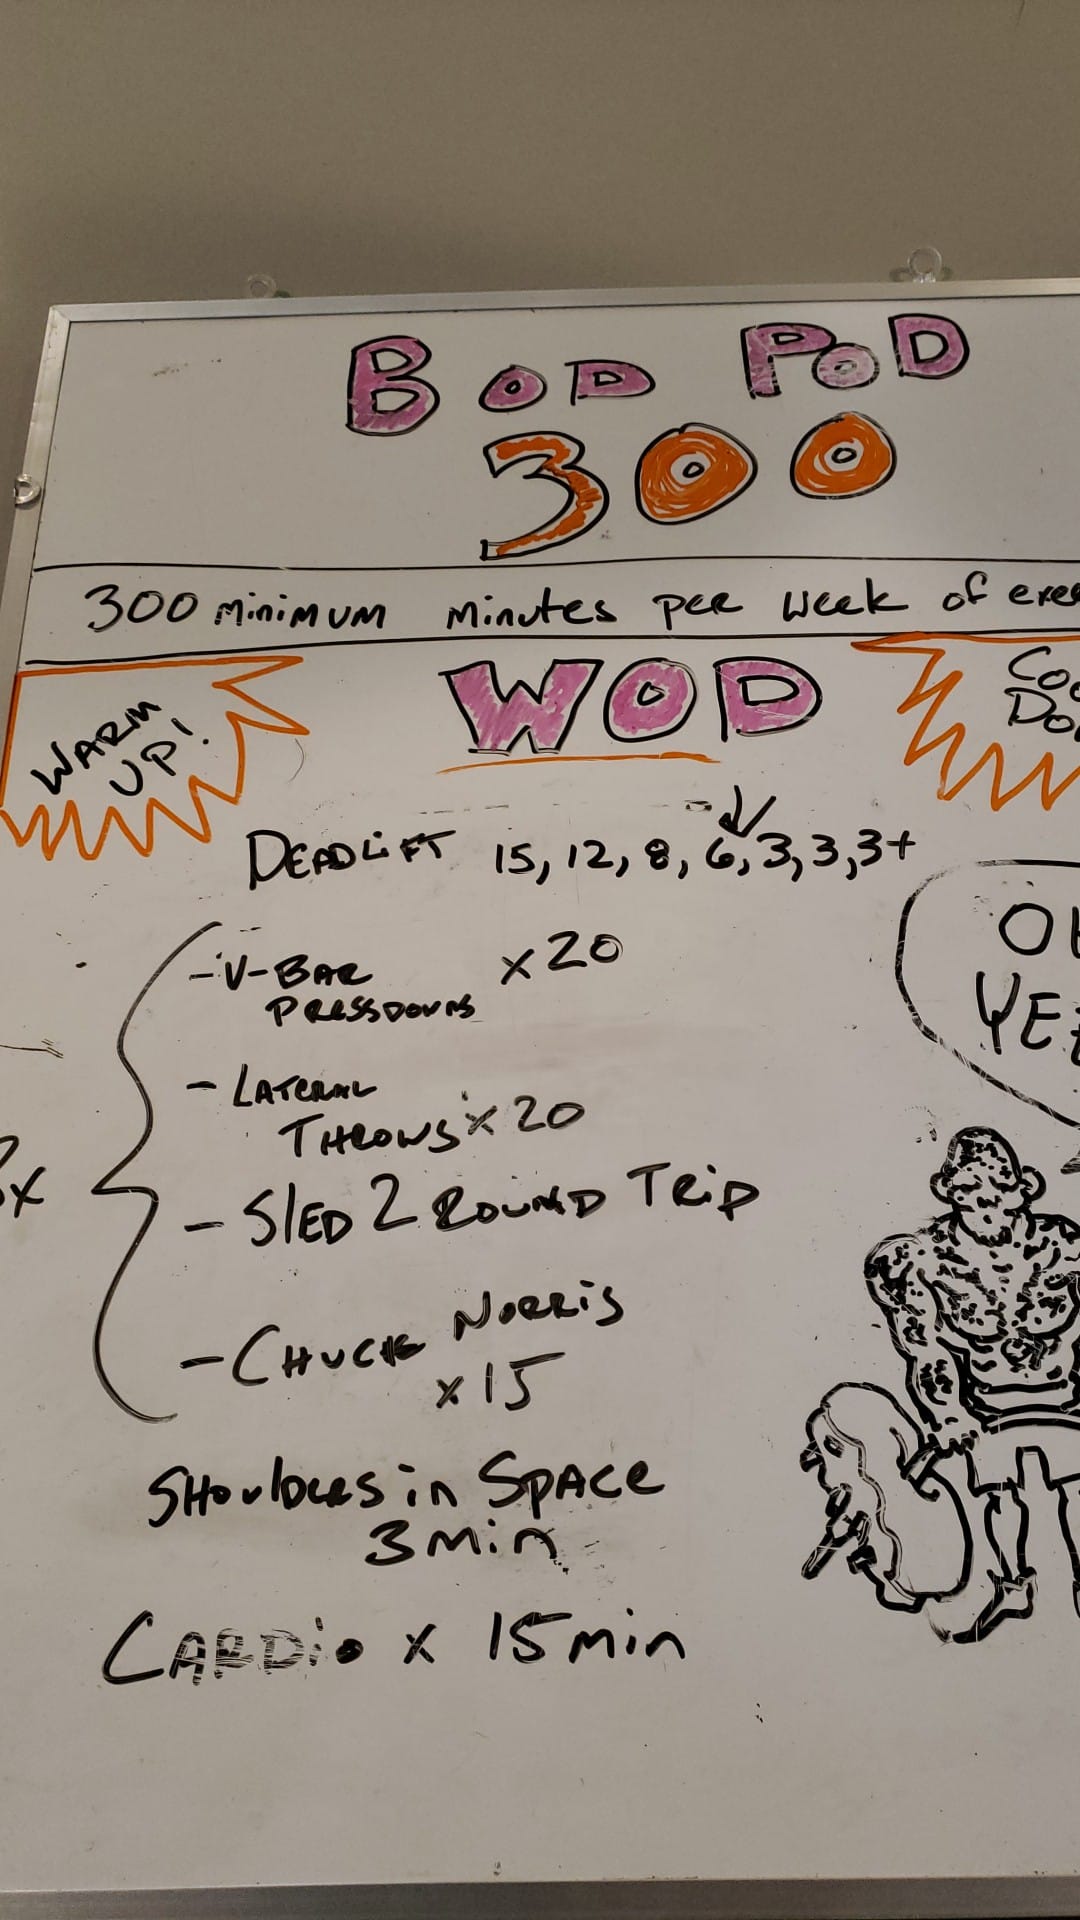 BOD POD
300
300 minimum minutes per week of exe
WARM
UP!
WOD
Coo
Do
DEADLIFT 15, 12, 8, 6, 3, 3, 3+
- V-BAR
PRESSDOWNS x 20
- LATERAL
THROWS x 20
- SLED 2 ROUND TRIP
- CHUCK NORRIS
x 15
SHOULDERS in SPACE
3 min
CARDIO x 15 min
YE